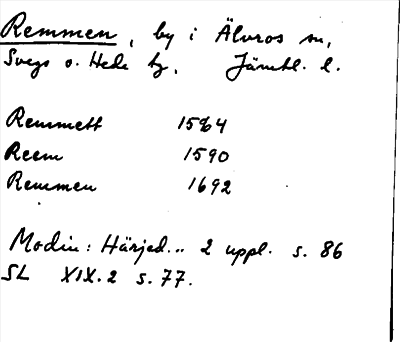 Remmen, by i Älvros sn,
Svegs o. Hede tg, Jämtl. l.
Remmett 1564
Reem 1590
Remmen 1692
Modin: Härjed... 2 uppl. s. 86
SL XIX.2 s. 77.